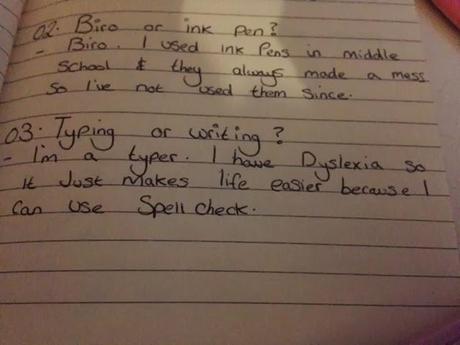 02. Biro or ink pen?
- Biro. I used ink Pens in middle
School & they always made a mess
so I've not used them since.
03. Typing or writing?
- I'm a typer. I have Dyslexia so
it Just makes life easier because I
can use Spell check.